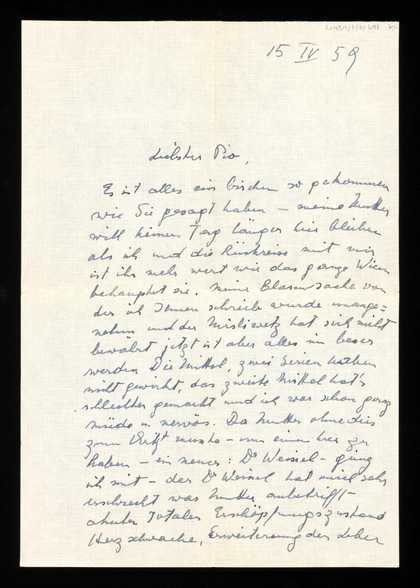 15 IV 59
Liebster Pio,
Es ist alles ein bischen so gekommen
wie Sie gesagt haben – meine Mutter
will keinen Tag länger hier bleiben
als ich und die Rückreise mit mir
ist ihr mehr wert wie das ganze Wien
behauptet sie. Meine Blasensache von
der ich Ihnen schrieb wurde unange=
nehm und der hat sich nicht
bewährt jetzt ist aber alles im besser
werden Die Mittel, zwei Serien hatten
nicht gewirkt, das zweite Mittel hat's
schlechter gemacht und ich war schon ganz
müde u nervös. Da Mutter ohnedies
zum Arzt musste – um einen hier zu
haben – ein neuer: Dr Weissel – ging
ich mit – der Dr Weissel hat mich sehr
erschreckt was Mutter anbetrifft –
akuter Totaler Erschöpfungszustand
Herzschwäche, Erweiterung der Leber